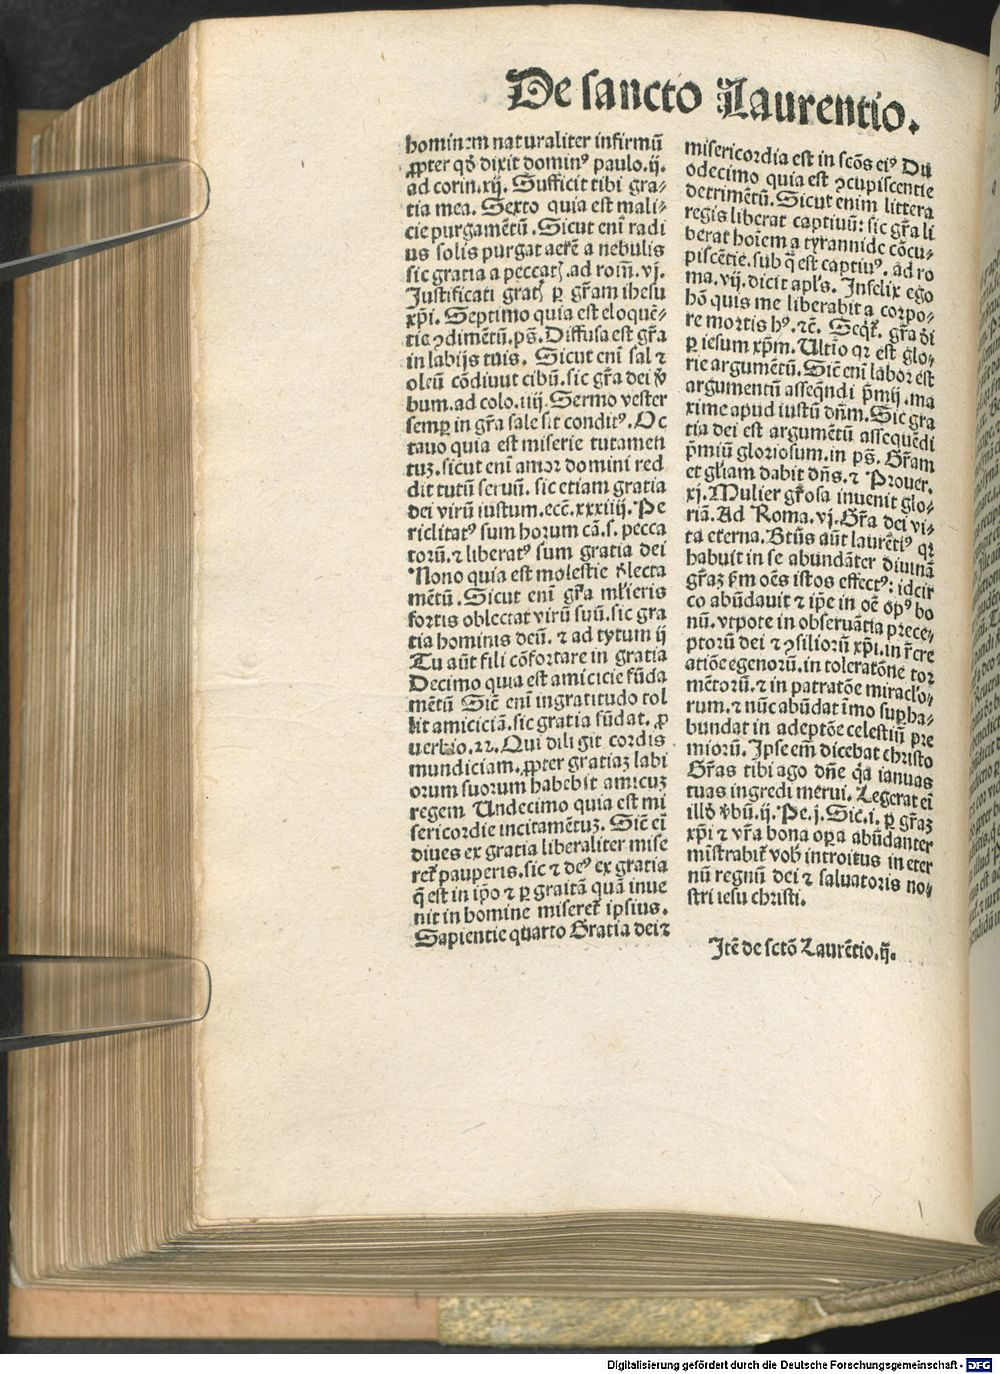 De sancto Laurentio.
hominem naturaliter infirmū
ꝓpter qđ dixit dominꝰ paulo.ij.
ad corin.xij. Sufficit tibi gra⸗
tia mea. Sexto quia est mali⸗
cie purgamētū. Sicut eni radi
us solis purgat aerē a nebulis
sic gratia a peccatꝭ.ad rom̄.vj.
Justificati gratꝭ ꝑ gr̄am ihesu
xp̄i. Septimo quia est eloquē⸗
tie ꝯdimētū.ps̄. Diffusa est gr̄a
in labijs tuis. Sicut eni sal ⁊
oleū cōdiuut cibū.sic gr̄a dei v̄
bum.ad colo.iiij. Sermo vester
semꝑ in gr̄a sale sit conditꝰ. Oc
tauo quia est miserie tutamen
tuꝫ.sicut eni amor domini red
dit tutū seruū. sic etiam gratia
dei virū iustum.ecc̄.xxxiiij. Pe
riclitatꝰ sum horum cā.s. pecca
torū.⁊ liberatꝰ sum gratia dei
Nono quia est molestie ꝟlecta
mētū. Sicut eni gr̄a ml̄ieris
fortis oblectat virū suū.sic gra
tia hominis deū. ⁊ ad tytum ij
Tu aūt fili cōfortare in gratia
Decimo quia est amicicie fūda
mētū Sic̄ eni ingratitudo tol
lit amiciciā.sic gratia fūdat. ꝓ
uerbio.22. Qui diligit cordis
mundiciam.ꝓpter gratiaꝫ labi
orum suorum habebit amicuꝫ
regem Undecimo quia est mi
sericordie incitamētuꝫ. Sic̄ ei̅
diues ex gratia liberaliter mise
ret̄ pauperis.sic ⁊ deꝰ ex gratia
q̄ est in ip̄o ⁊ ꝑ graitā quā inue
nit in homine miseret̄ ipsius.
Sapientie quarto Gratia dei ⁊
misericordia est in scōs eiꝰ Du
odecimo quia est ꝯcupiscentie
detrimētū. Sicut enim littera
regis liberat captiuū: sic gr̄a li
berat hoīem a tyrannide cōcu⸗
piscētie.sub q̄ est captiuꝰ. ad ro
ma.vij.dicit apl̄s. Infelix ego
hō quis me liberabit a corpo⸗
re mortis hꝰ.⁊c̄. Seqt̄. gr̄a di
ꝑ iesum xp̄m. Ultīo qꝛ est glo⸗
rie argumētū. Sic̄ eni labor est
argumentū asseq̄ndi p̄mij.ma
xime apud iustū dn̄m. Sic gra
tia dei est argumētū assequēdi
p̄miū gloriosum.in ps̄. Gr̄am
et gl̄iam dabit dn̄s.⁊ Prouer.
xj. Mulier gr̄osa inuenit glo⸗
riā. Ad Roma.vj. Gr̄a dei vi⸗
ta eterna. Btūs aūt laurētiꝰ qꝛ
habuit in se abundāter diuinā
gr̄aꝫ ẜm oēs istos effectꝰ: idcir
co abūdauit ⁊ ip̄e in oē opꝰ bo
nū. vtpote in obseruātia prece⸗
ptorū dei ⁊ ꝯsiliorū xp̄i.in r̄cre
atiōe egenorū.in toleratōne tor
mētorū.⁊ in patratōe miraclo⸗
rum.⁊ nūc abūdat īmo suꝑha⸗
bundat in adeptōe celestiū pre
miorū. Ipse em̄ dicebat christo
Gr̄as tibi ago dn̄e qꝛ̄a ianuas
tuas ingredi merui. Legerat ei̅
illđ v̄bū.ij. Pe.j. Sic̄.i. ꝑ gr̄aꝫ
xp̄i ⁊ vr̄a bona oꝑa abūdanter
mīstrabit̄ vob̄ introitus in eter
nū regnū dei ⁊ saluatoris no⸗
stri iesu christi.
Jtē de sctō Laurētio.ij.
Digitalisierung gefördert durch die Deutsche Forschungsgemeinschaft - DFG